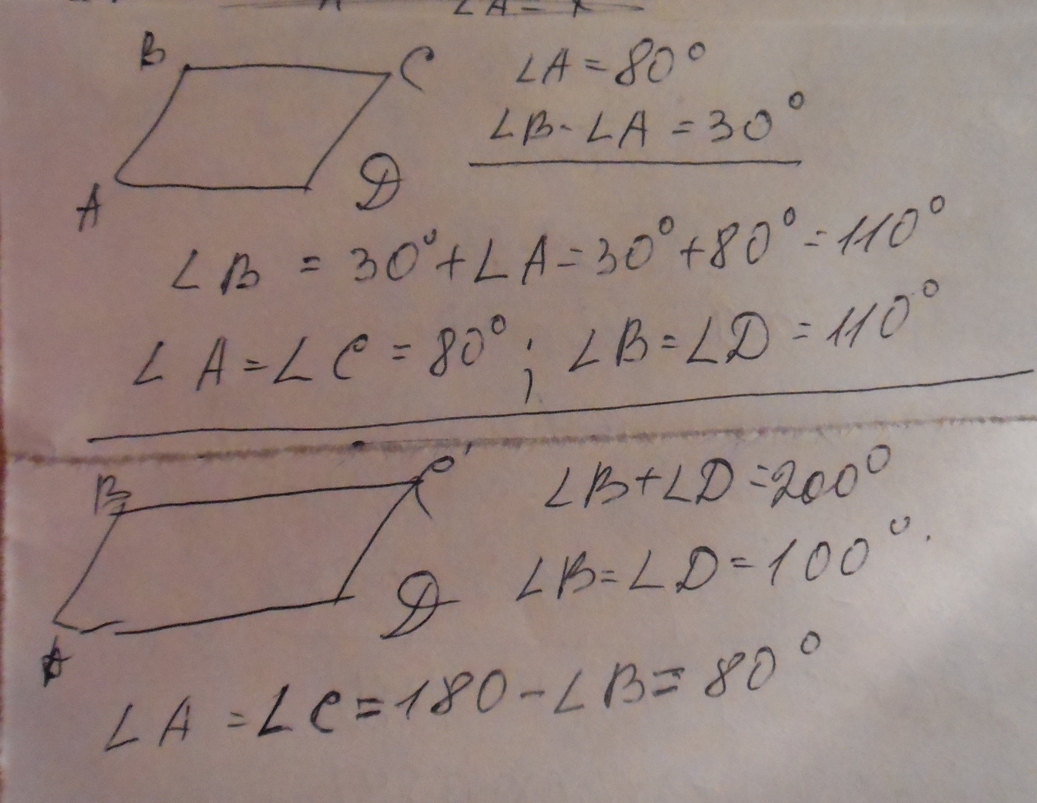 ∠A = x
B C ∠A = 80°
∠B - ∠A = 30°
A D
∠B = 30° + ∠A = 30° + 80° = 110°
∠A = ∠C = 80° ; ∠B = ∠D = 110°
B C ∠B + ∠D = 200°
∠B = ∠D = 100°.
A D
∠A = ∠C = 180 - ∠B = 80°